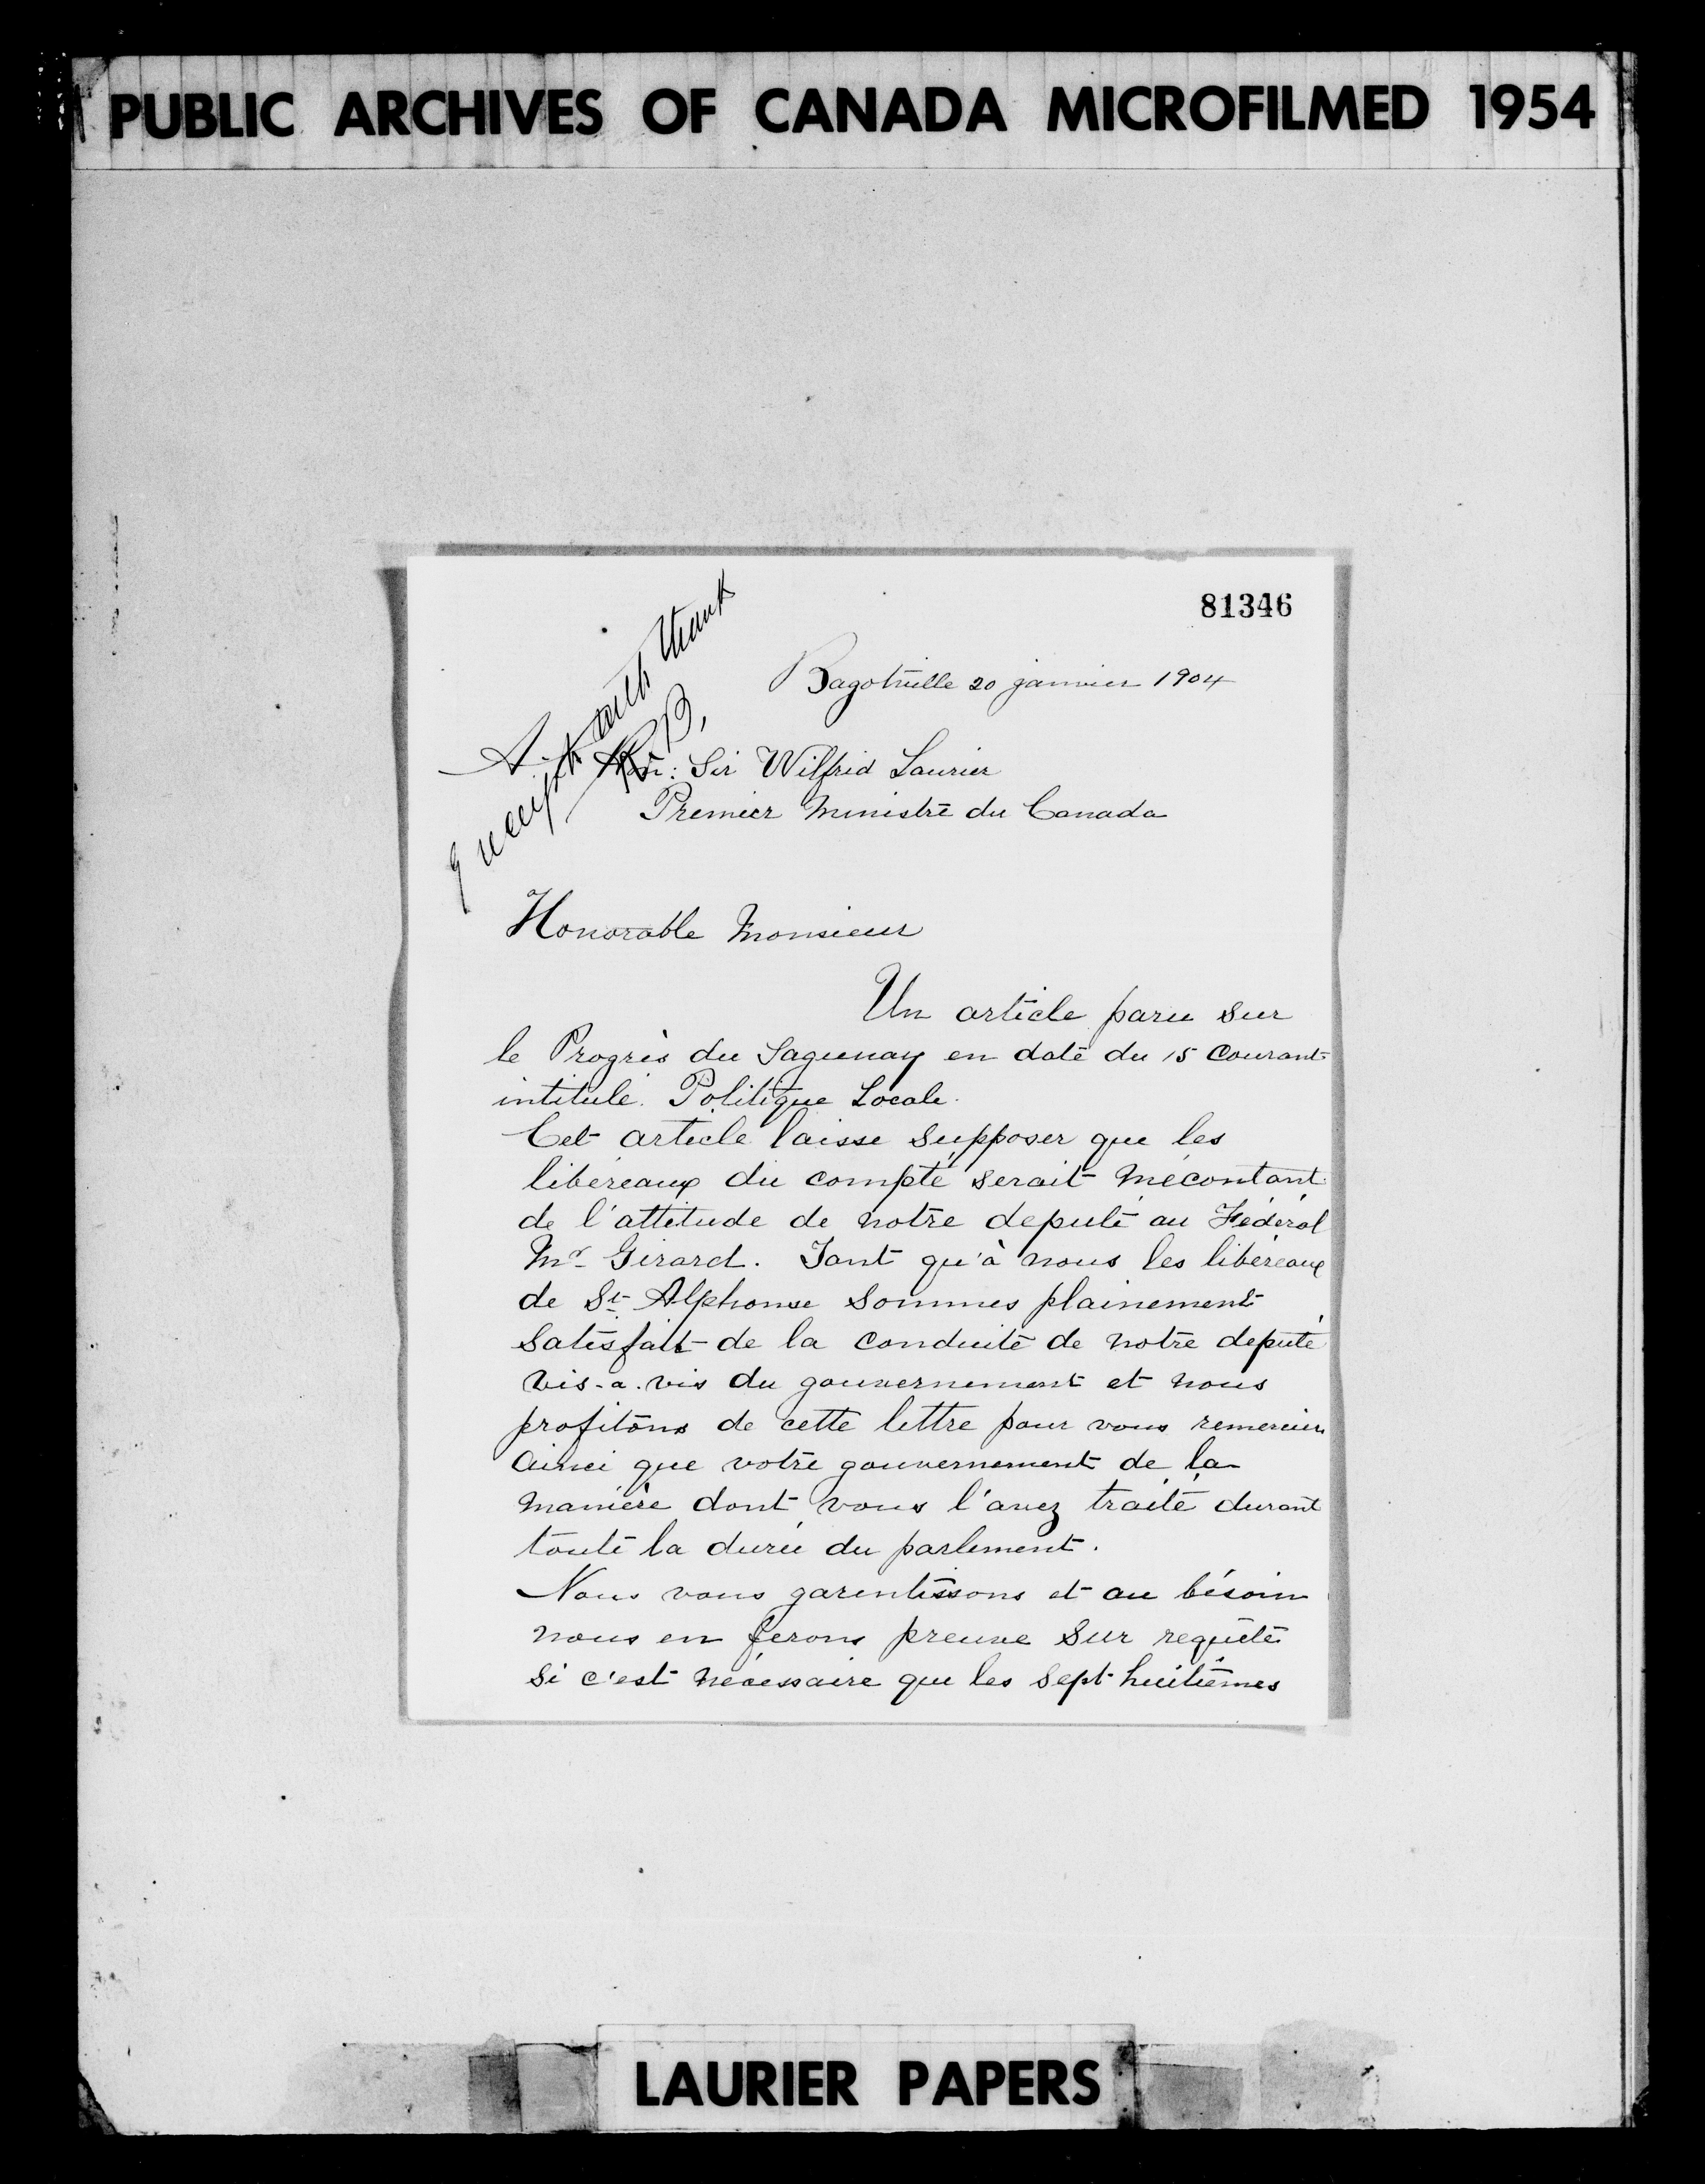 PUBLIC ARCHIVES OF CANADA MICROFILMED 1954
81346
with thank
Bagotville 20 janvier 1904
Hon: Sir Wilfrid Laurier
Premier Ministre du Canada
Honorable Monsieur
Un article paru sur
le Progrès du Saguenay en date du 15 courant
intitulé. Politique Locale.
Cet article laisse supposer que les
libéreaux du compté serait mécontant
de l'attitude de notre deputé au Fédéral
Mr Girard. Tant qu'à nous les libéreaux
de St Alphonse sommes plainement
satisfait de la conduite de notre deputé
vis-a-vis du gouvernement et nous
profitons de cette lettre pour vous remercier
ainci que votre gouvernement de la
manière dont vous l'avez traité durant
toute la durée du parlement.
Nous vous garentissons et au bésoin
nous en ferons preuve sur requête
si c'est nécessaire que les sept huitièmes
LAURIER PAPERS